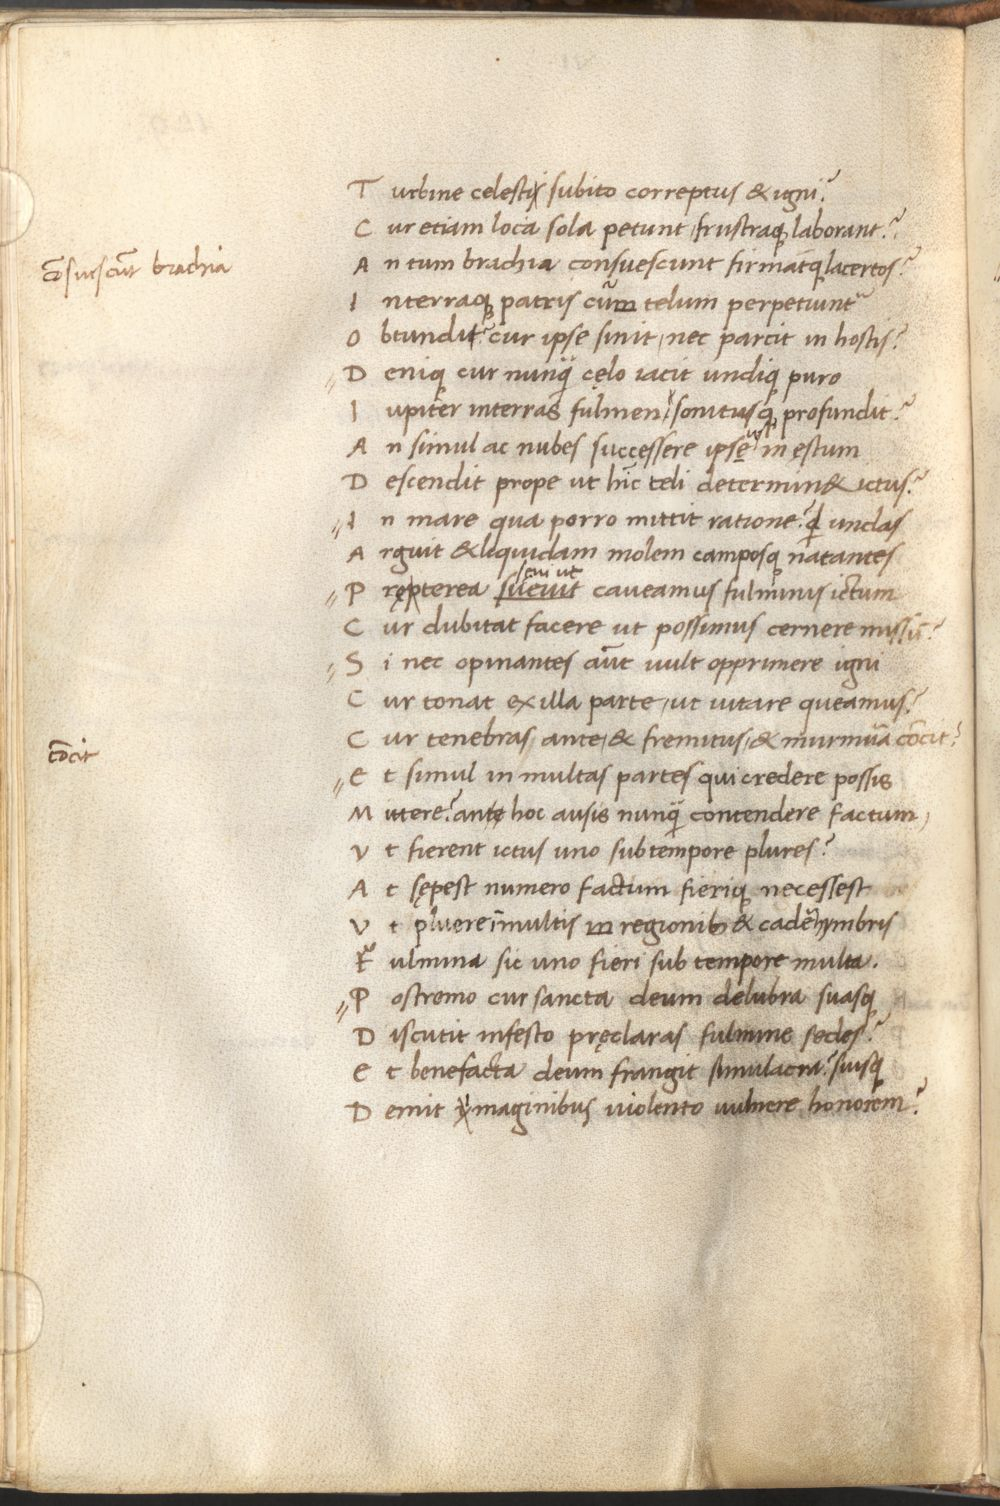 T urbine celesti subito correptus & igni?
C ur etiam loca sola petunt, frustraq; laborant?
cōsuescūt brachia
A n tum brachia consuescunt firmātq; lacertos?
I nterraq; patris cū telum perpetiunt᷑
O btundit? cur ipse sinit, nec parcit in hostis?
D eniq; cur nunq̈ cęlo iacit undiq; puro
I upiter interras fulmen, sonitusq; profundit?
A n simul ac nubes successere ipse in ęstum
D escendit prope ut hīc teli determin& ictus?
I n mare qua porro mittit ratione? qd undas
A rguit & liquidam molem camposq; natantes
P rępterea sucuit caveamus fulminis ictum
C ur dubitat facere ut possimus cernere missū?
S i nec opinantes aūt uult opprimere igni
C ur tonat ex illa parte, ut uitare queamus?
cōcit
C ur tenebras, ante, & fremitus, & murmura cōcit?
E t simul in multas partes qui credere possis
M ittere? ante hoc ausis nunq̈ contendere factum,
V t fierent ictus uno subtempore plures?
A t sępest numero factum fieriq; necessest
V t pluere īmultis in regionib; & cadē hymbris
F ulmina sic uno fieri sub tempore multa.
P ostremo cur sancta deum delubra suasq;
D iscutit infesto pręclaras fulmine sedes?
E t benefacta deum frangit simulacra? suisq;
D emit ymaginibus uiolento uulnere honorem?